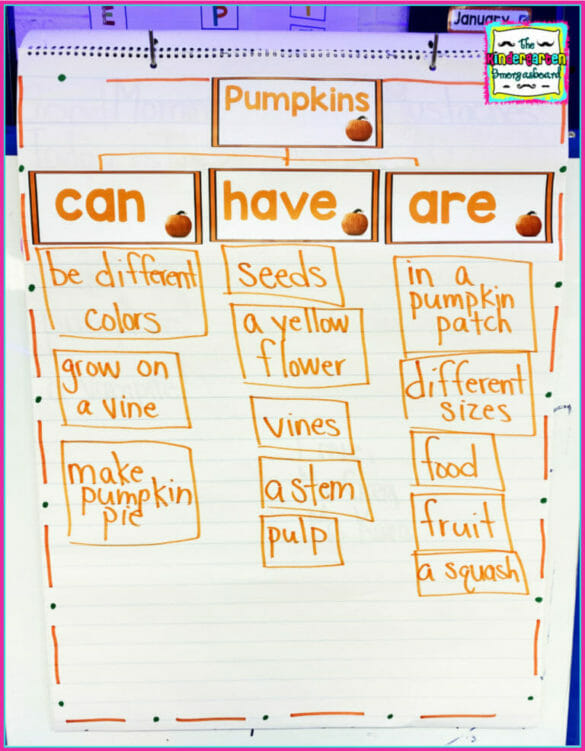 E
P
I
January
The
Kindergarten
Smorgasboard
Pumpkins
can
have
are
be different
colors
grow on
a vine
make
pumpkin
pie
seeds
a yellow
flower
vines
a stem
pulp
in a
pumpkin
patch
different
sizes
food
fruit
a squash